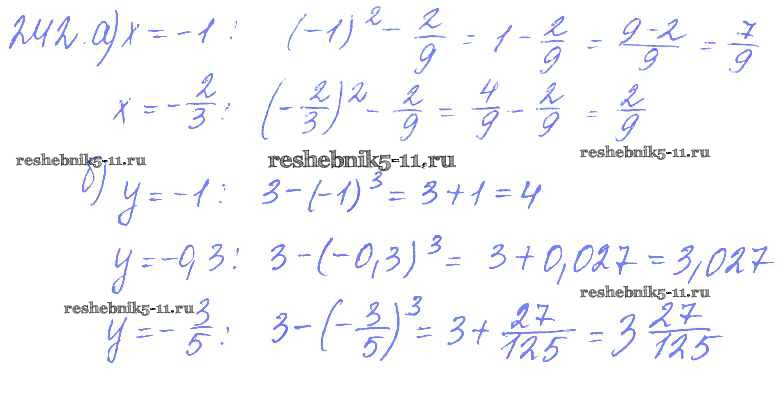 242. а) x = -1 : (-1)² - 2/9 = 1 - 2/9 = (9-2)/9 = 7/9
x = -2/3 : (-2/3)² - 2/9 = 4/9 - 2/9 = 2/9
reshebnik5-11.ru reshebnik5-11.ru reshebnik5-11.ru
б) y = -1 : 3 - (-1)³ = 3 + 1 = 4
y = -0,3 : 3 - (-0,3)³ = 3 + 0,027 = 3,027
reshebnik5-11.ru reshebnik5-11.ru
y = -3/5 : 3 - (-3/5)³ = 3 + 27/125 = 3 27/125